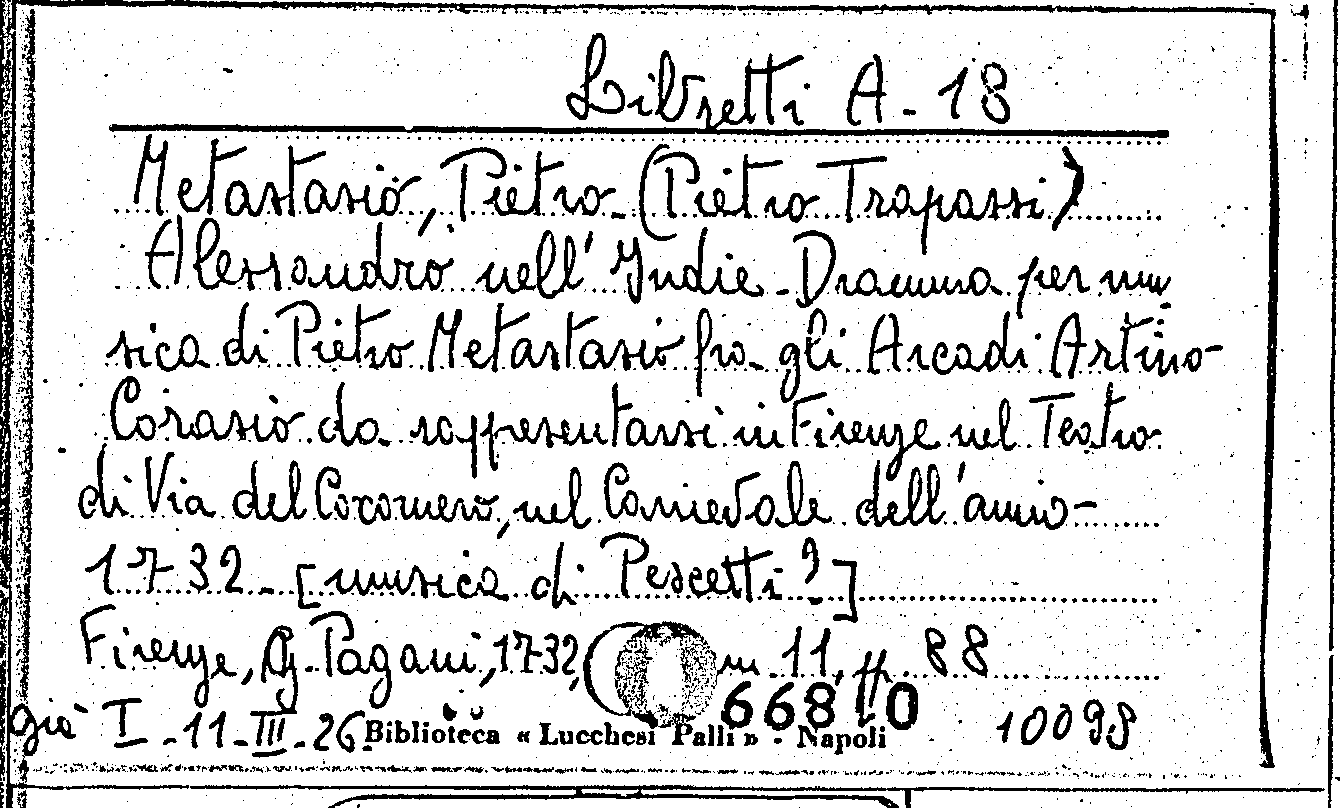 Libretti A-18
Metastasio, Pietro - (Pietro Trapassi)
Alessandro nell' Indie - Dramma per mu
sica di Pietro Metastasio fra gli Arcadi Artino
Corasio da rappresentarsi in Firenze nel Teatro
di Via del Cocomero, nel Carnevale dell'anno
1732 - [musica di Pescetti?]
Firenze, G. Pagani, 1732, in 11, pp. 88
66840
già I - 11 - III - 26 Biblioteca « Lucchesi Palli » - Napoli 10098